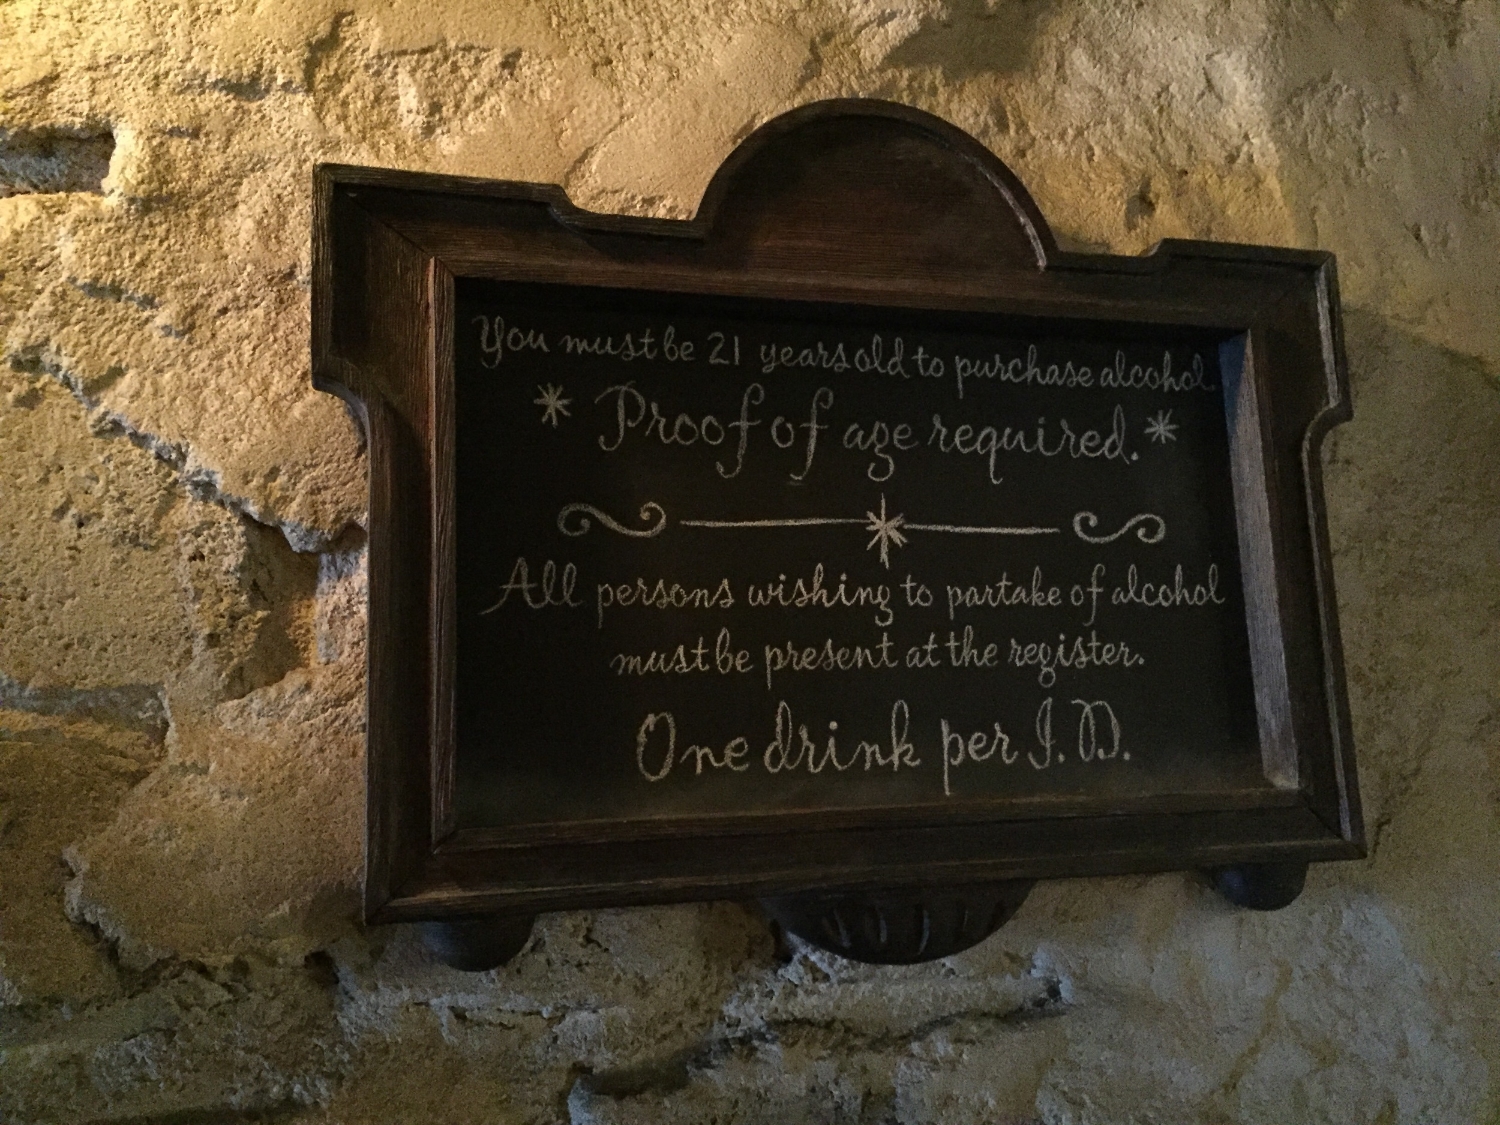 You must be 21 years old to purchase alcohol.
* Proof of age required. *
All persons wishing to partake of alcohol
must be present at the register.
One drink per I.D.